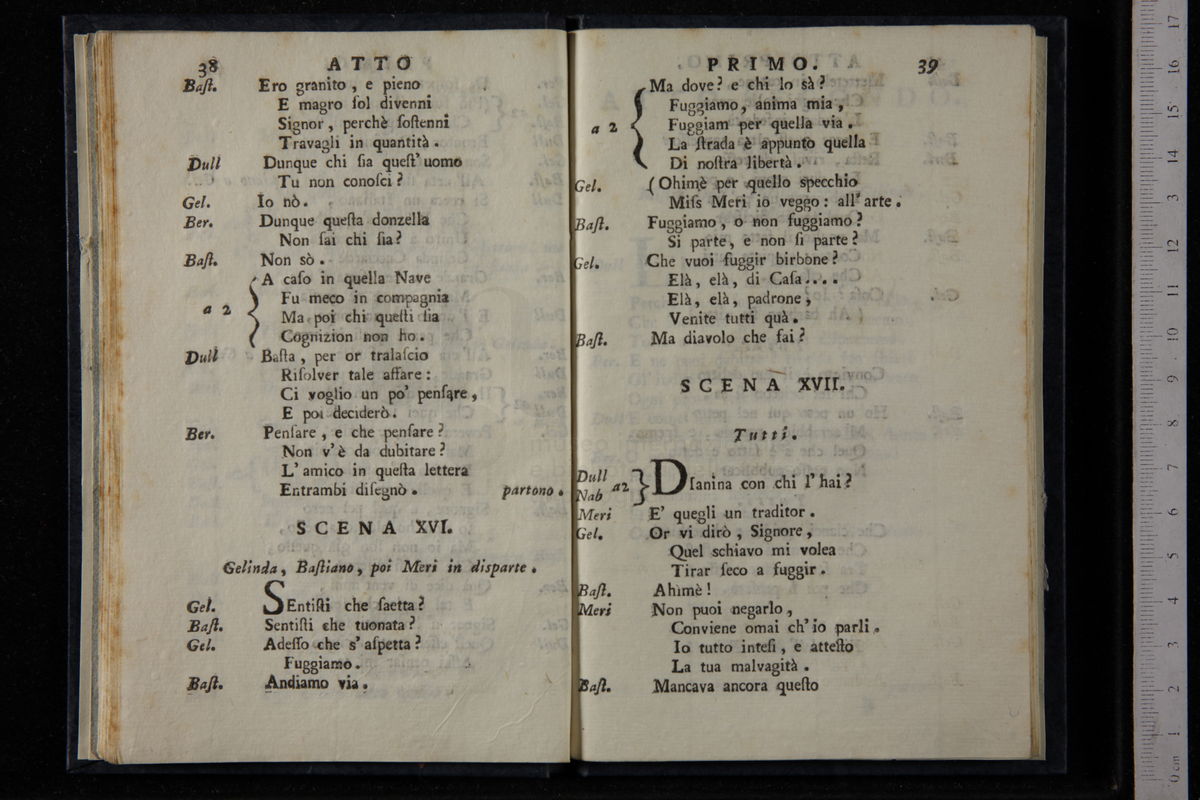 38 ATTO
Baſt. Ero granito , e pieno
E magro ſol divenni
Signor , perchè ſoſtenni
Travagli in quantità .
Dull Dunque chi ſia queſt' uomo
Tu non conoſci ?
Gel. Io nò .
Ber. Dunque queſta donzella
Non ſai chi ſia ?
Baſt. Non sò .
a 2 A caſo in quella Nave
Fu meco in compagnia
Ma poi chi queſti ſia
Cognizion non ho .
Dull Baſta , per or tralaſcio
Riſolver tale affare :
Ci voglio un po' penſare ,
E poi deciderò .
Ber. Penſare , e che penſare ?
Non v' è da dubitare ?
L' amico in queſta lettera
Entrambi diſegnò . partono .
SCENA XVI.
Gelinda, Baſtiano, poi Meri in disparte .
Gel. SEntiſti che ſaetta ?
Baſt. Sentiſti che tuonata ?
Gel. Adeſſo che s' aſpetta ?
Fuggiamo .
Baſt. Andiamo via .
PRIMO. 39
Ma dove ? e chi lo sà ?
a 2 Fuggiamo, anima mia ,
Fuggiam per quella via .
La ſtrada è appunto quella
Di noſtra libertà .
Gel. ( Ohimè per quello specchio
Miſs Meri io veggo : all' arte .
Baſt. Fuggiamo , o non fuggiamo ?
Si parte, e non ſi parte ?
Gel. Che vuoi fuggir birbone ?
Elà, elà, di Caſa ....
Elà, elà, padrone ,
Venite tutti quà .
Baſt. Ma diavolo che fai ?
SCENA XVII.
Tutti.
Dull Nab a 2 DIanina con chi l' hai ?
Meri E' quegli un traditor .
Gel. Or vi dirò , Signore ,
Quel schiavo mi volea
Tirar ſeco a fuggir .
Baſt. Ahimè !
Meri Non puoi negarlo ,
Conviene omai ch' io parli .
Io tutto inteſi , e atteſto
La tua malvagità .
Baſt. Mancava ancora queſto
0 cm 1 2 3 4 5 6 7 8 9 10 11 12 13 14 15 16 17